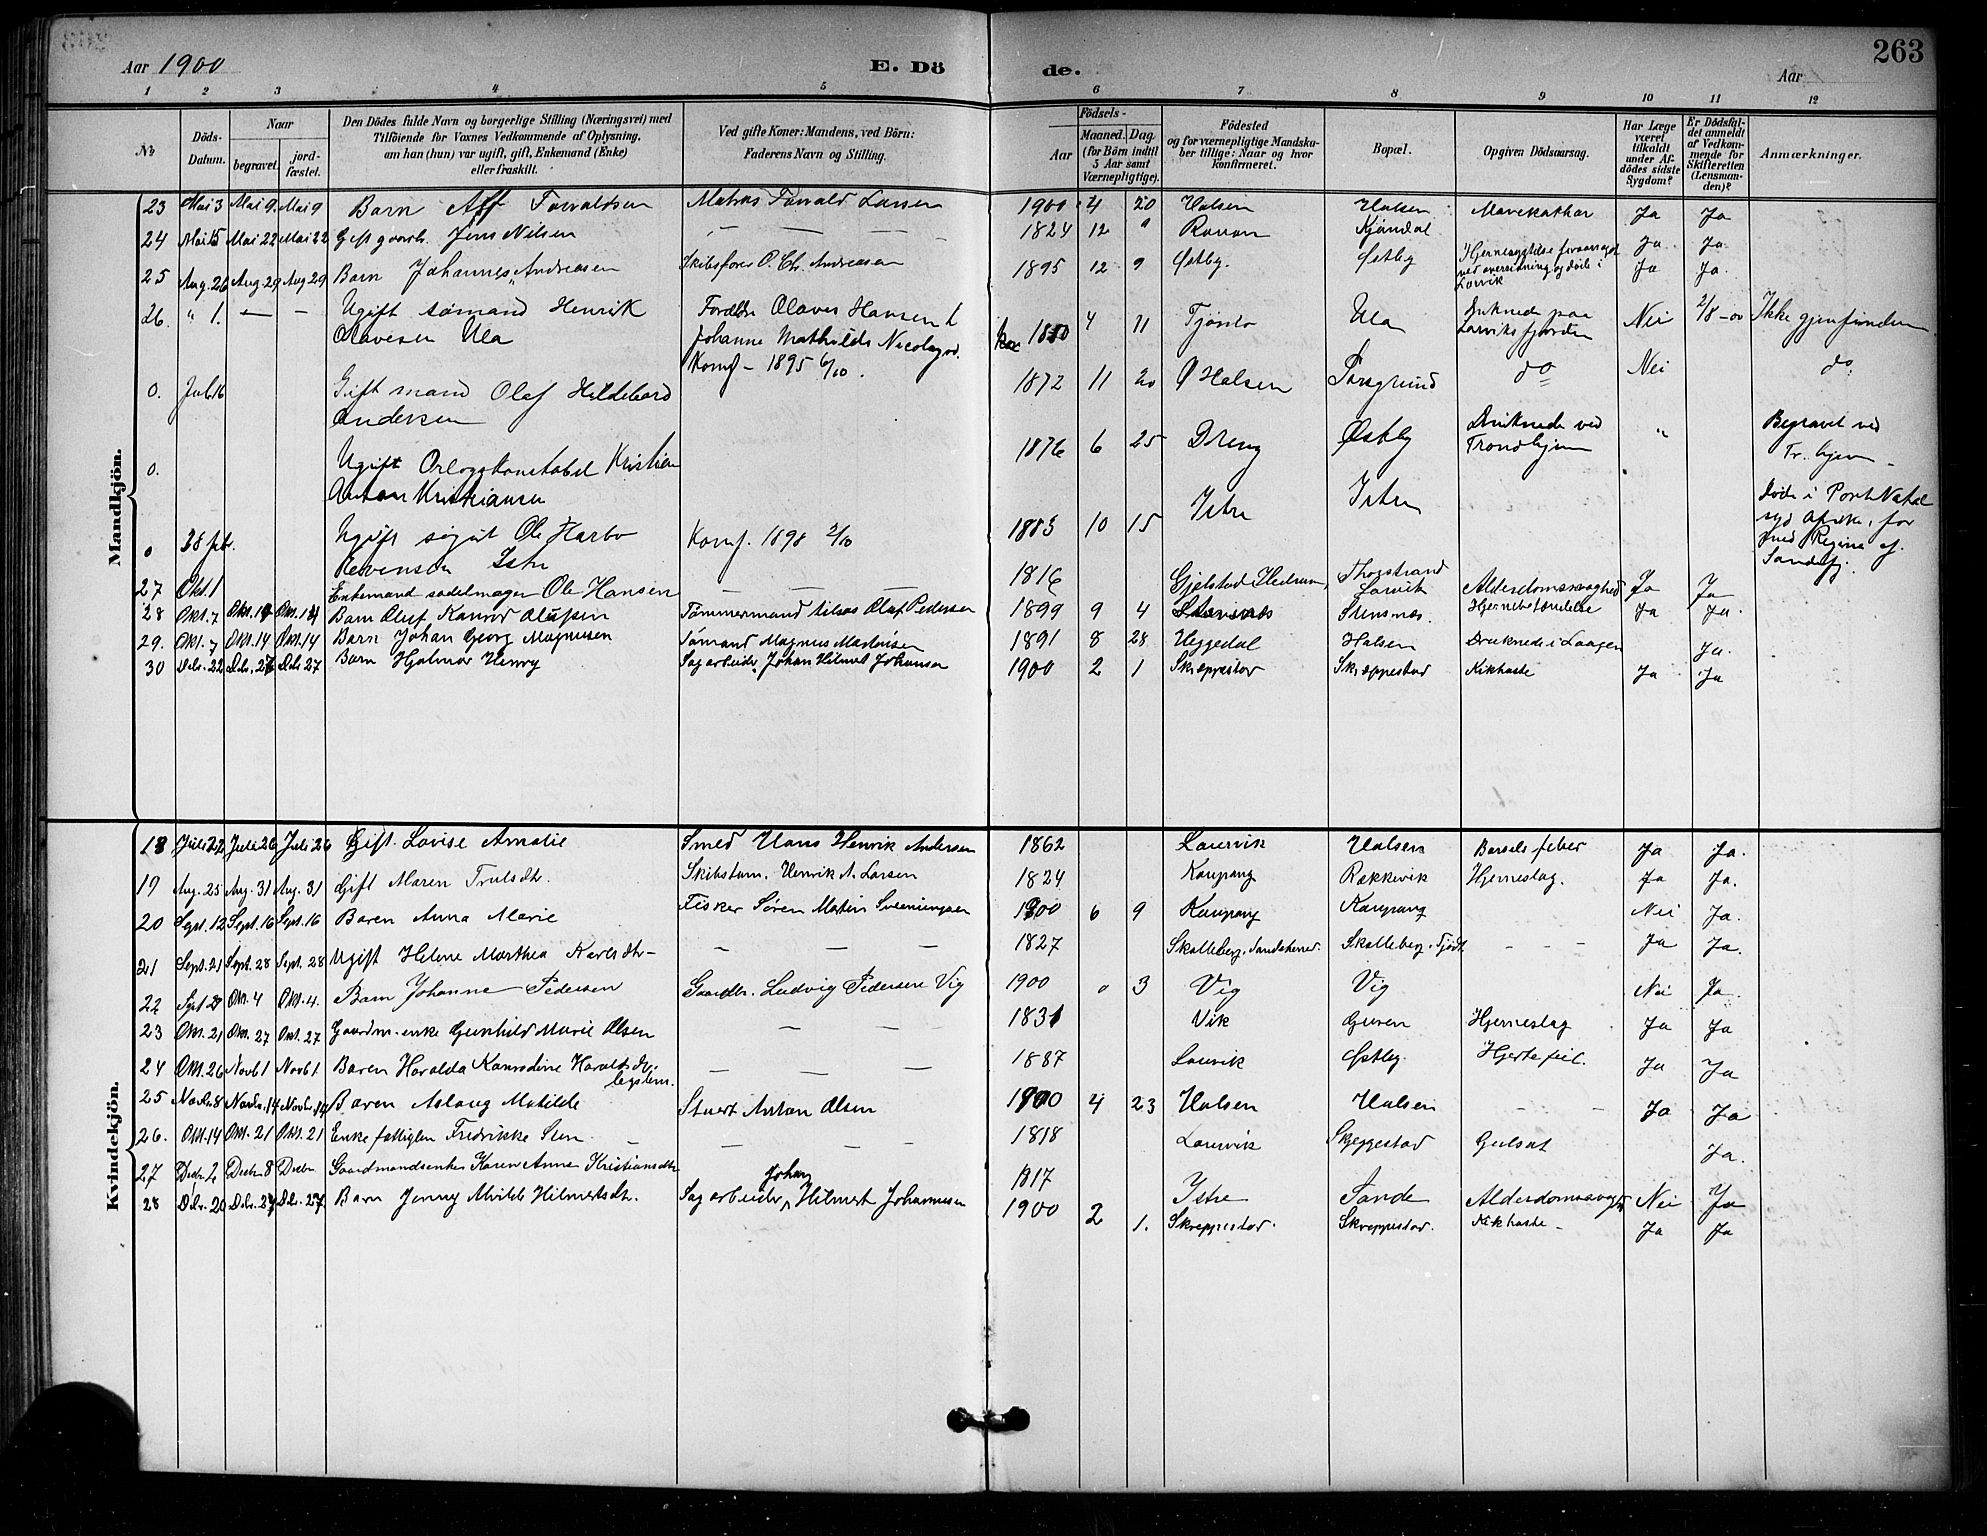 263
Aar 1900
E. Dö
de.
Aar
1 2 3 4 5 6 7 8 9 10 11 12
№
Döds-Datum.
Naar
begravet.
jord-fæstet.
Den Dödes fulde Navn og borgerlige Stilling (Næringsvei) med
Tilföiende for Voxnes Vedkommende af Oplysning,
om han (hun) var ugift, gift, Enkemand (Enke)
eller fraskilt.
Ved gifte Koner: Mandens, ved Börn:
Faderens Navn og Stilling.
Födsels-
Aar
Maaned. Dag.
(for Börn indtil
5 Aar samt
Værnepligtige).
Födested
og for værnepligtige Mandska-
ber tillige: Naar og hvor
konfirmeret.
Bopæl.
Opgiven Dödsaarsag.
Har Læge
været
tilkaldt
under Af-
dödes sidste
Sygdom?
Er Dödsfal-
det anmeldt
af Vedkom-
mende for
Skifteretten
(Lensman-
den)?
Anmærkninger.
Mandkjön.
23 Mai 3 Mai 9. Mai 9 Barn Alf Torvaldsen Matros Torvald Larsen 1900 4 20 Halsen Halsen Mavekathar Ja Ja
24 Mai 15 Mai 22 Mai 22 Gift gaardb. Jens Nilsen — — — 1824 12 " Kjøndal Ja Ja.
25 Aug. 26 Aug 29 Aug 29 Barn Johannes Andreasen Skibsfører O. Chr. Andreasen 1895 12 9 Østby. Østby Hjernesygdom foraarsaget
ved overridning og døde i
Larvik Ja Ja.
26. " 1. — — Ugift sømand Henrik
Olavesen Ula Forældre Olaves Hansen &
Johanne Mathilde Nicolaysd.
Konf. – 1895 6/10. 1880 4 11 Tjønto Ula Druknede paa
Larviksfjorden Nei 2/8 – 00 Ikke gjenfunden
0. Juli 16 Gift mand Olaf Hildebard
Andersen 1872 11 20 Ø Halsen Porsgrund do Nei do
0. Ugift Orlogskonstabel Kristian
Anton Kristiansen 1876 6 25 Dreng Østby Druknede ved
Trondhjem " Begravet ved
Tr. hjem –
0 28 feb. Ugift sjøgut Ole Harbo
Revensen Istre Konf. 1898 2/10 1883 10 15 Istre Istre døde i Port Natal
syd Afrika, for
med Regina af
Sandefj.
27 Okt. 1 Enkemand sadelmager Ole Hansen — — 1816 Gjelstad Hedrum, Thorstrand
Larvik Alderdomssvaghed Ja Ja
28 Okt. 7 Okt. 14 Okt. 14 Barn Oluf Konrad Olufsen Tømmermand Olaf Pedersen 1899 9 4 Stensnæs Stensnæs. Hjernebetændelse Ja Ja.
29. Okt. 7 Okt. 14 Okt. 14 Barn Johan Georg Magnusen Sømand Magnus Martinsen 1891 8 28 Heggedal Halsen Druknede i Laagen Ja.
30 Debr. 22 Debr. 27 Debr 27 Barn Hjalmar Henry Sagarbeider Johan Hilmert Johansen 1900 2 1 Skreppestad Skreppestad Kikhoste Ja Ja
Kvindekjön.
18 Juli 22 Juli 26 Juli 26 Gift. Lovise Amalie Smed Hans Henrik Andersen 1862 Laurvik Halsen Barselsfeber Ja Ja.
19 Aug. 25 Aug. 31 Aug. 31 Gift Maren Trulsdtr. Skibstøm. Henrik A. Larsen 1824 Kaupang Rækkevik Hjerneslag. Ja Ja.
20 Sept. 12 Sept. 16 Sept. 16 Baren Anna Marie Fisker Søren Martin Sveeningsen 1900 6 9 Kaupang Kaupang Nei Ja.
21 Sept. 21 Sept. 28 Sept. 28 Ugift Helene Marthea Karlsdtr – — — — 1827 Skalleberg. Sandeherred Skalleberg. Tjødl. - - - Ja Ja.
22 Sept 29 Okt. 4 Okt. 4. Barn Johanne Pedersen Gaardbr. Ludvig Pedersen Vig 1900 " 3 Vig Vig Nei Ja.
23 Okt. 21 Okt. 27 Okt. 27 Gaardm. enke Gunhild Marie Olsen — — 1831 Vik Guren Hjerneslag Ja Ja
24 Okt. 26 Novb 1 Novb 1. Baren Haralda Konradine Haraldsdtr.
legdslem. — — — 1887 Laurvik Østby. Hjertefeil. Ja Ja
25 Novbr. 8 Novbr. 14 Novbr. 14 Baren Aslaug Matilde Stuert Anton Olsen 1900 4 23 Halsen Halsen - - Ja Ja
26. Okt. 14 Okt. 21 Okt. 21 Enke fattiglem Fredrikke — — — 1818 Laurvik Skjeggestad Gulsot Ja.
27 Decbr. 2 Decbr 8 Decbr Gaardmandsenke Karen Anne Kristiansdtr 1817 Istre Sande Alderdomssvagh. Nei Ja
28 Debr. 20 Debr. 27 Debr. 27 Barn Jenny Alvilde Hilmertsdtr. Sagarbeider Johan Hilmert Johannesen 1900 2 1. Skreppestad. Skreppestad. Kikhoste – Ja Ja